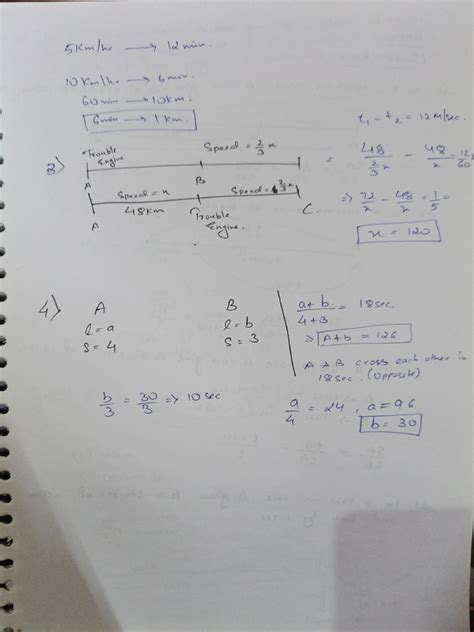 5 Km/hr → 12 min.
10 Km/hr → 6 min
60 min → 10 Km.
6 min → 1 Km.
t₁ - t₂ = 12 M/sec.
3)
Trouble Engine
Speed = 2/3 x
A
B
Speed = x
Speed = 2/3 x
48 Km
A
Trouble Engine.
C.
= 48/(2/3 x) - 48/x = 12/60
⇒ 72/x - 48/x = 1/5 =
x = 120
4)
A
l = a
S = 4
B
l = b
S = 3
a + b / 4 + 3 = 18 sec
⇒ A + b = 126
A & B cross each other in
18 sec. (Opposite)
b/3 = 30/3 ⇒ 10 sec
a/4 = 24, a = 96
b = 30